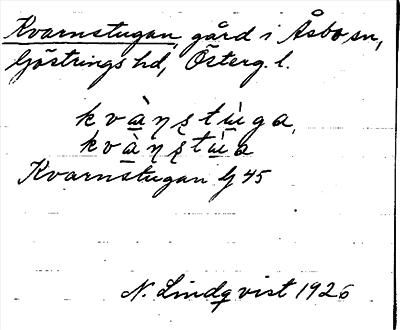 Kvarnstugan, gård i Åsbo sn,
Göstrings hd, Österg. l.
kvà̱ṇʂtù̱ga,
kvà̱ṇʂtù̱a
Kvarnstugan Gj 45
N. Lindqvist 1926